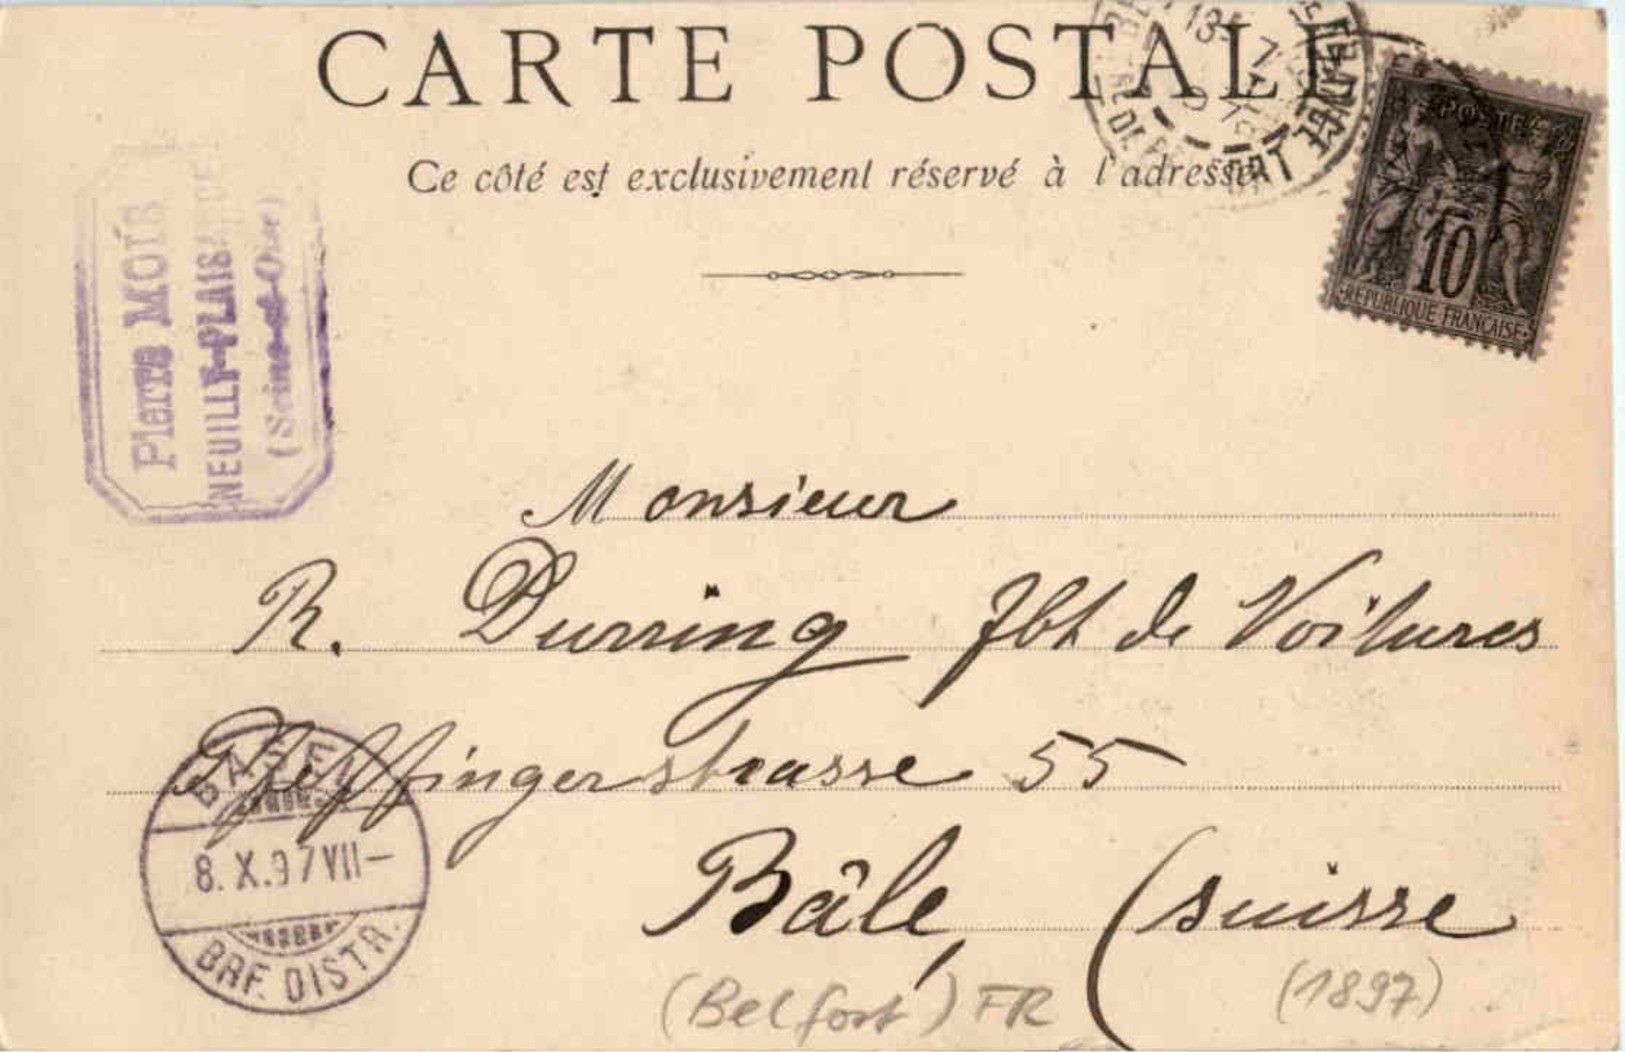 CARTE POSTALE
Ce côté est exclusivement réservé à l'adresse
POSTES
10
REPUBLIQUE FRANÇAISE
Pierre
NEUILLY-PLAISANCE
(Seine-et-Oise)
Monsieur
R. Durring Fbt de Voitures
Pfeffingerstrasse 55
Bâle, (suisse
BASEL
8. X. 97 VII–
BRF. DISTR.
(Belfort) FR
(1897)